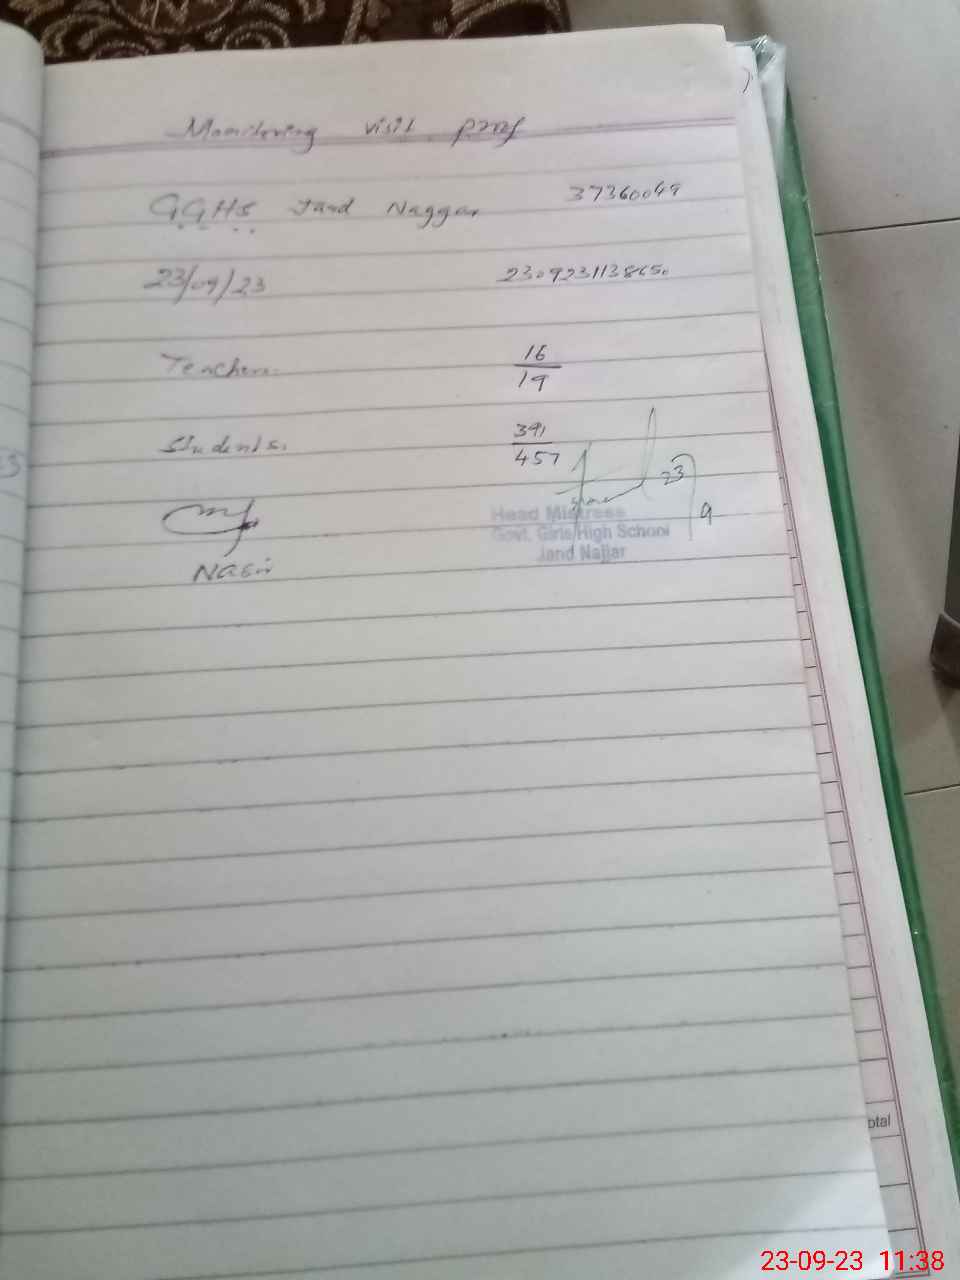 Monitoring visit proof
GGHS Jand Naggar 37360049
23/09/23 230923113850
Teachers 16/19
Students. 391/457
23/9
Head Mistress
Govt. Girls High School
Jand Najjar
Nasir
otal
23-09-23 11:38